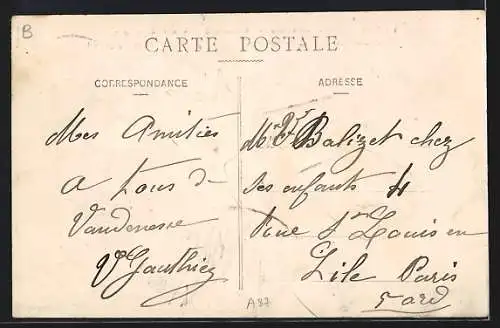 B
CARTE POSTALE
CORRESPONDANCE
Mes Amitiés
a tous de
Vandenesse
Vve Gauthiez
ADRESSE
Balizet chez
ses enfants 4
Rue St Louis en
L'ile Paris
A 87